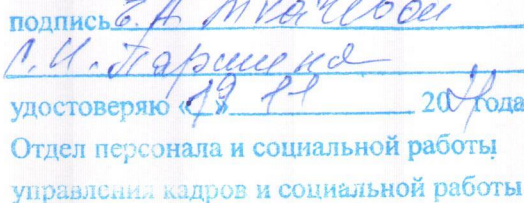 подпись Е.А. Ткачевой
С.И. Паршина
удостоверяю «19» 11 2021 года
Отдел персонала и социальной работы
управления кадров и социальной работы